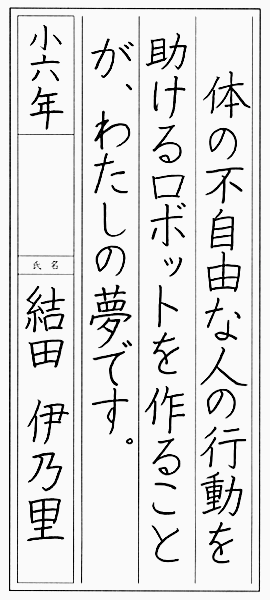 体の不自由な人の行動を
助けるロボットを作ること
が、わたしの夢です。
小六年
氏名
結田 伊乃里